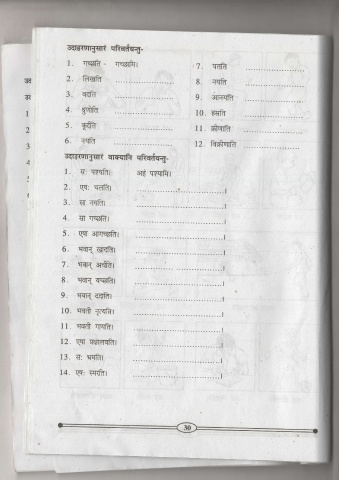 उदाहरणानुसारं परिवर्तयन्तु-
1. गच्छति - गच्छामि।
2. लिखति ....................
3. वदति ....................
4. शृणोति ....................
5. कूर्दति ....................
6. नयति ....................
7. पतति ....................
8. नयति ....................
9. आनयति ....................
10. हसति ....................
11. क्रीणाति ....................
12. विक्रीणाति ....................
उदाहरणानुसारं वाक्यानि परिवर्तयन्तु-
1. सः पश्यति। अहं पश्यामि।
2. एषः चलति। ....................।
3. सा नयति। ....................।
4. सा गच्छति। ....................।
5. एषा आगच्छति। ....................।
6. भवान् खादति। ....................।
7. भवान् अर्चति। ....................।
8. भवान् यच्छति। ....................।
9. भवान् ददाति। ....................।
10. भवती नृत्यति। ....................।
11. भवती गायति। ....................।
12. एषा प्रक्षालयति। ....................।
13. सः भ्रमति। ....................।
14. एषः स्मरति। ....................।
30